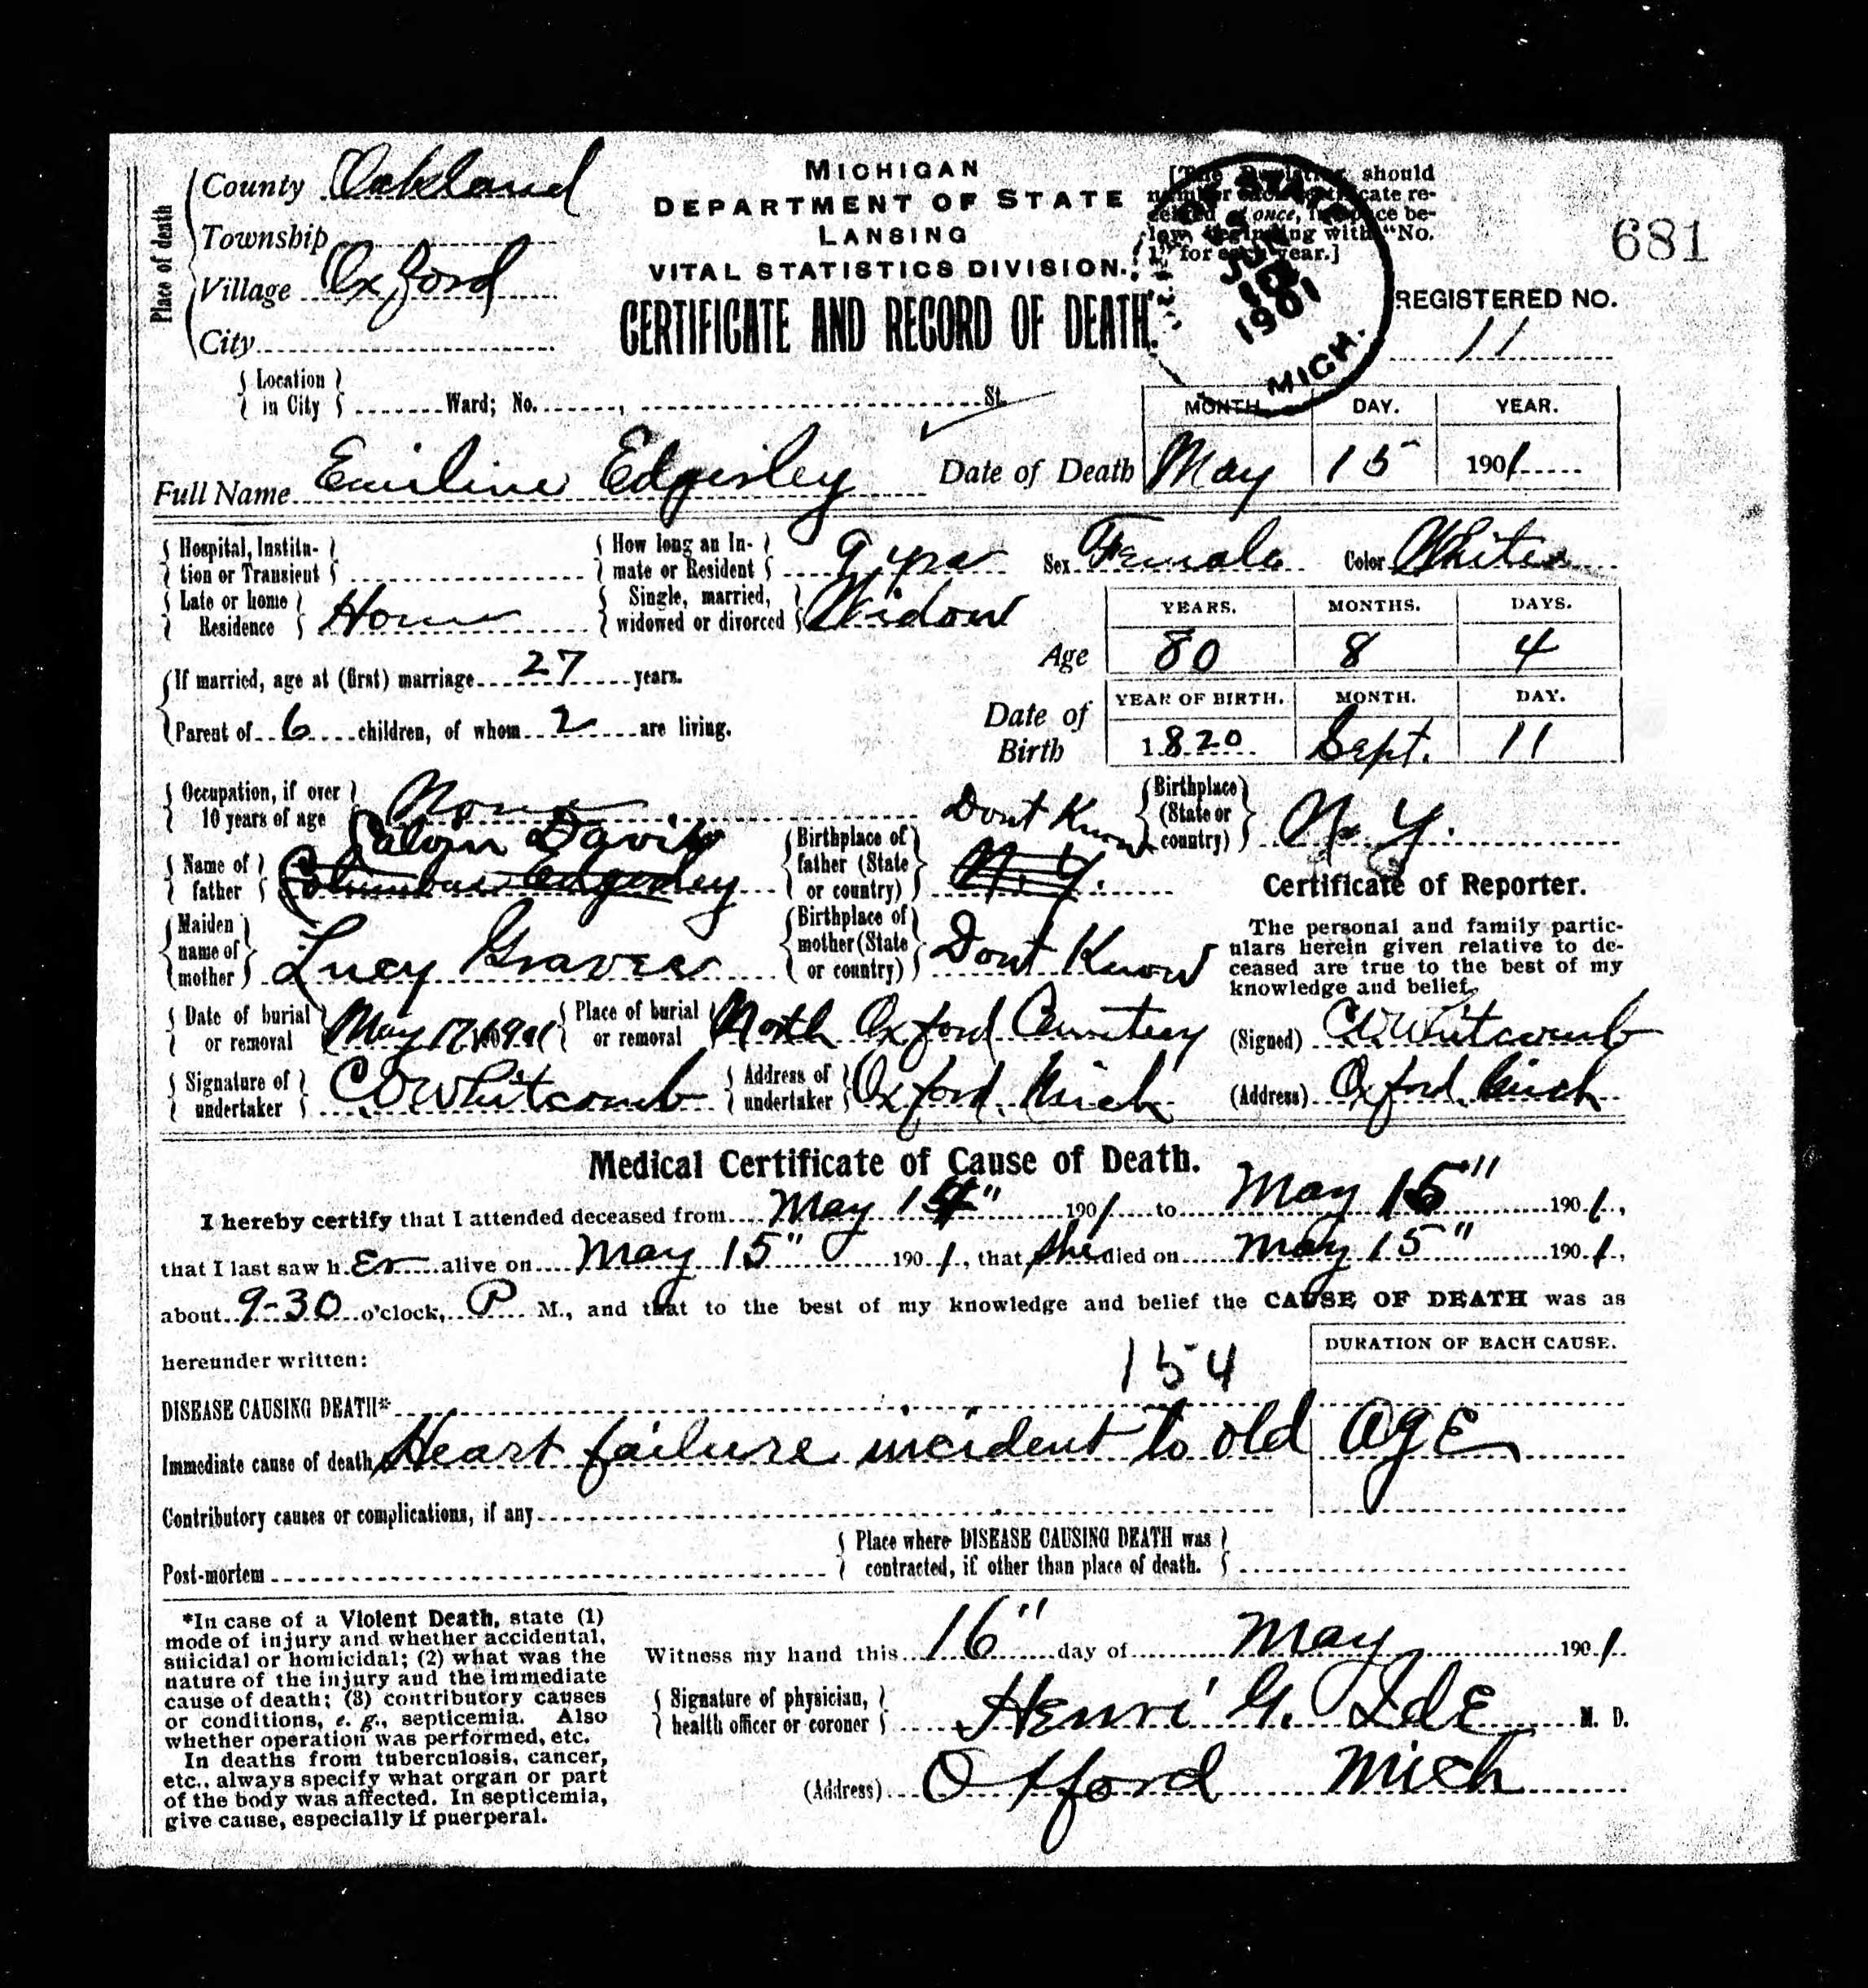 MICHIGAN
DEPARTMENT OF STATE
LANSING
VITAL STATISTICS DIVISION.
CERTIFICATE AND RECORD OF DEATH.
Place of death
County Oakland
Township
Village Oxford
City
[The should
number cate re-
once, ce be-
with "No.
1" for year.]
JUN
1901
MICH.
681
REGISTERED NO.
11
Location in City Ward; No. , St.
Full Name Emiline Edgerley
Date of Death
MONTH. DAY. YEAR.
May 15 1901
Hospital, Institution or Transient
How long an Inmate or Resident 9 yrs
Sex Female Color White
Late or home Residence Home
Single, married, widowed or divorced Widow
Age
YEARS. MONTHS. DAYS.
80 8 4
If married, age at (first) marriage 27 years.
Parent of 6 children, of whom 2 are living.
Date of Birth
YEAR OF BIRTH. MONTH. DAY.
1820 Sept. 11
Occupation, if over 10 years of age None
Birthplace (State or country) N. Y.
Name of father Calvin Davis
Columbus Edgerley
Birthplace of father (State or country) Dont Know
N. Y.
Maiden name of mother Lucy Graves
Birthplace of mother (State or country) Dont Know
Certificate of Reporter.
The personal and family partic-
ulars herein given relative to de-
ceased are true to the best of my
knowledge and belief.
Date of burial or removal May 17 1901
Place of burial or removal North Oxford Cemetery
(Signed) C. O. Whitcomb
Signature of undertaker C. O. Whitcomb
Address of undertaker Oxford, Mich
(Address) Oxford, Mich
Medical Certificate of Cause of Death.
I hereby certify that I attended deceased from May 14" 1901 to May 15" 1901,
that I last saw her alive on May 15" 1901, that she died on May 15" 1901,
about 9-30 o'clock, P M., and that to the best of my knowledge and belief the CAUSE OF DEATH was as
hereunder written:
DURATION OF EACH CAUSE.
154
DISEASE CAUSING DEATH*
Immediate cause of death Heart failure incident to old age
Contributory causes or complications, if any
Post-mortem
Place where DISEASE CAUSING DEATH was contracted, if other than place of death.
*In case of a Violent Death, state (1)
mode of injury and whether accidental,
suicidal or homicidal; (2) what was the
nature of the injury and the immediate
cause of death; (3) contributory causes
or conditions, e. g., septicemia. Also
whether operation was performed, etc.
In deaths from tuberculosis, cancer,
etc., always specify what organ or part
of the body was affected. In septicemia,
give cause, especially if puerperal.
Witness my hand this 16" day of May 1901.
Signature of physician, health officer or coroner Henri G. Ide M. D.
(Address) Oxford Mich